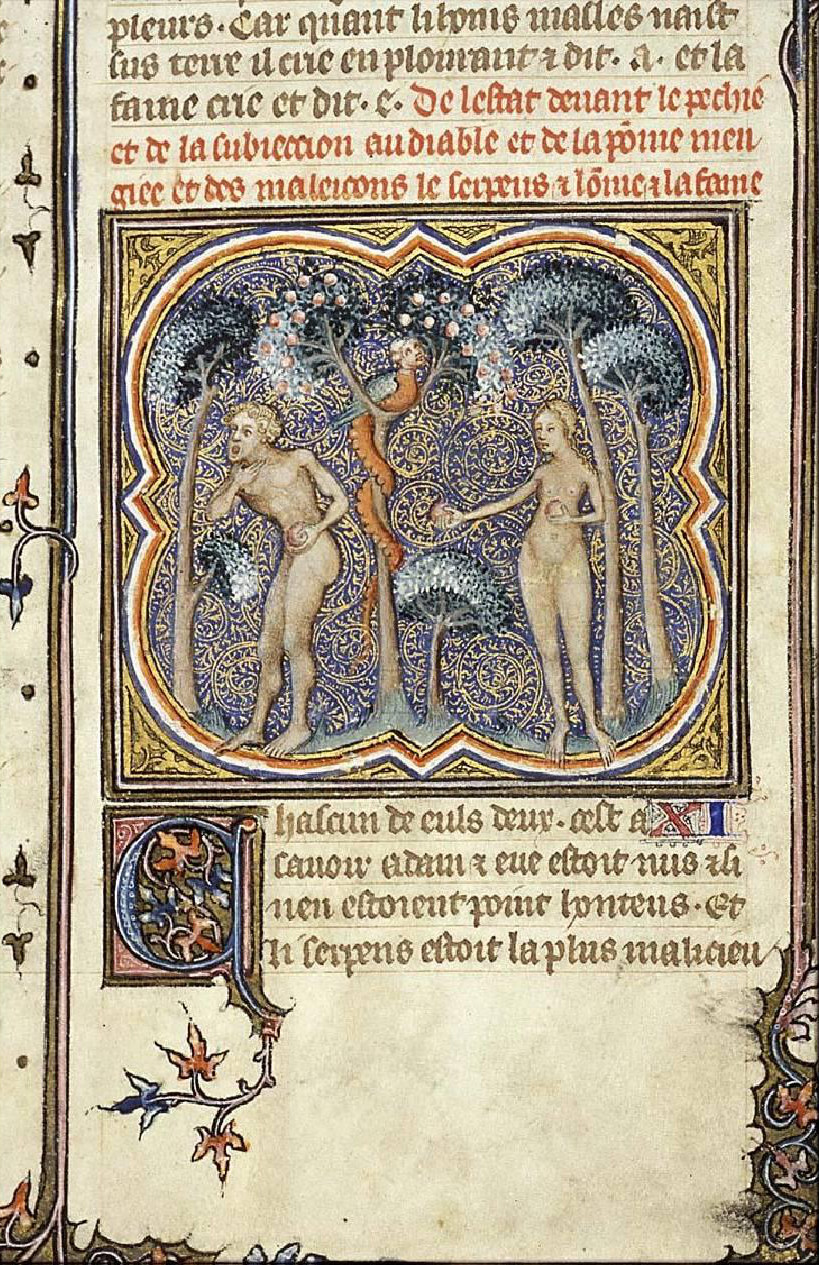 pleurs. Car quant li homs masles naist
sus terre il crie en plourant ⁊ dit. a. et la
fame crie et dit. e. De lestat deuant le pechie
et de la subieccion au diable et de la pōme men
giee et des maleicons le serpens ⁊ lōme ⁊ la fame
Chascun de euls deux. cest a XI
sauoir adam ⁊ eue estoit nus ⁊ si
nen estoient point honteus. Et
li serpens estoit la plus malicieu